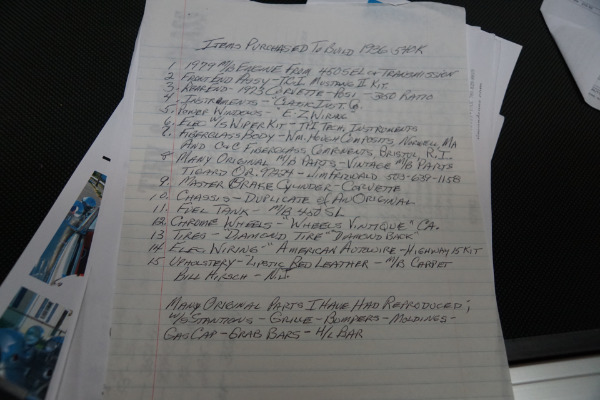 Items Purchased To Build 1936 540K
1. 1979 M/B Engine From 450SEL & Transmission
2. Front End Assy - TCI Mustang II Kit
3. Rear End - 1973 Corvette - Posi - 3:00 Ratio
4. Instruments - Classic Inst. Co.
5. Power Windows - E-Z Wiring
6. Elec W/S Wiper Kit - Tech. Instruments
7. Fiberglass Body - Wm. Hough Composits Norell, MA
And C&C Fiberglass Components, Bristol, R.I.
8. Many Original M/B Parts - Vintage M/B Parts
Tigard OR. 97224 - Jim Friswald 503-639-1158
9. Master Brake Cylinder - Corvette
10. Chassis - Duplicate of An Original
11. Fuel Tank - M/B 450 SL
12. Chrome Wheels - "Wheels Vintique" CA.
13. Tires - "Diamond Tire" "Diamond Back"
14. Elec. Wiring - "American Autowire - Highway 15 Kit
15. Upholstery - Lipstic Red Leather - M/B Carpet
Bill Hirsch - N.J.
Many Original Parts I Have Had Reproduced;
W/S Stantions - Grille - Bumpers - Moldings -
Gas Cap - Grab Bars - H/L Bar